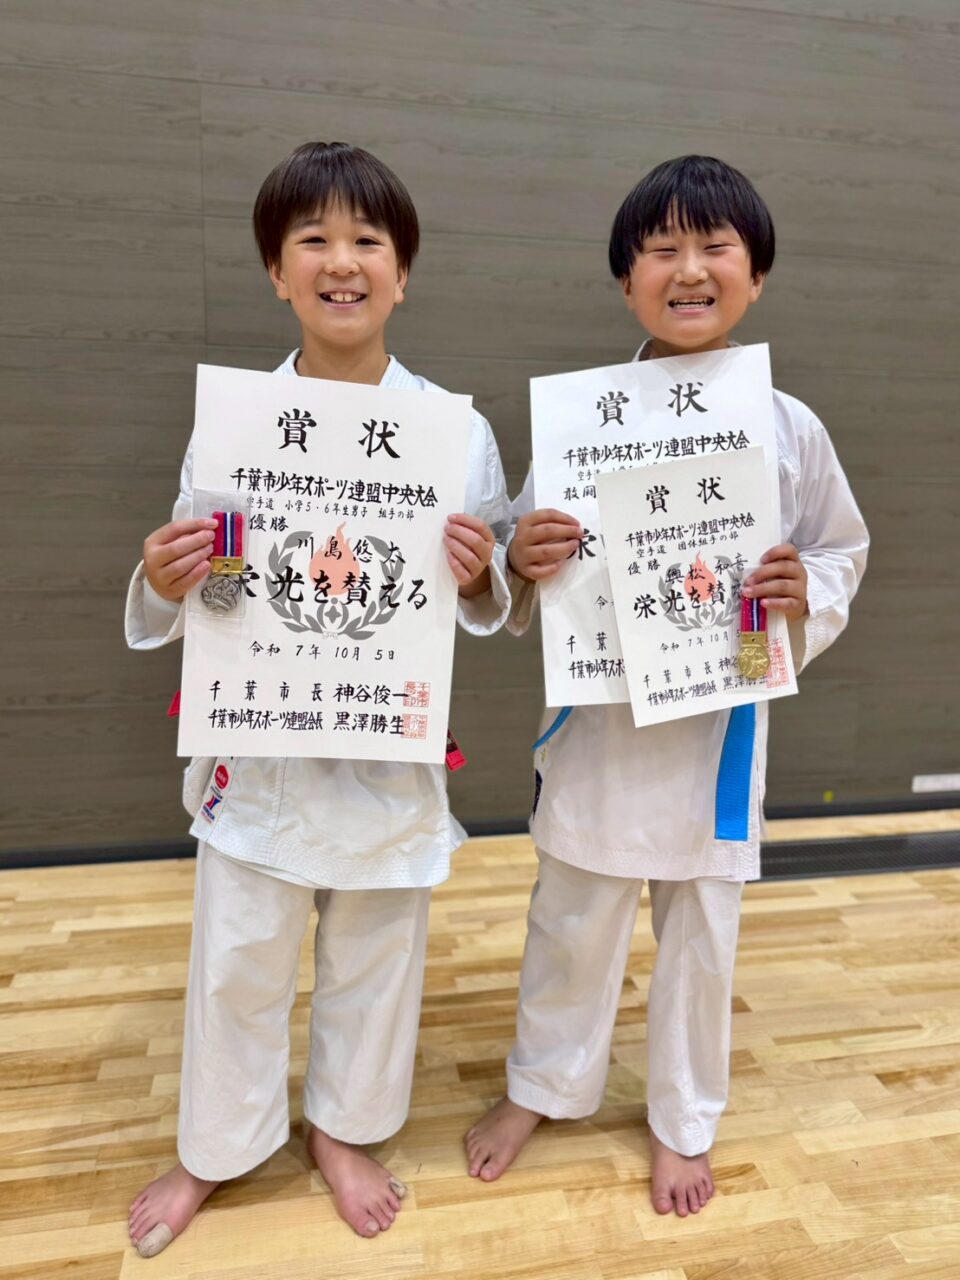 賞 状
千葉市少年スポーツ連盟中央大会
空手道 小学5・6年生男子 組手の部
優勝
川島悠太
栄光を讃える
令和 7年 10月 5日
千葉市長 神谷俊一
千葉市少年スポーツ連盟会長 黒澤勝生
賞 状
千葉市少年スポーツ連盟中央大会
空手道 小学5・6年
敢闘
栄
令
千葉
千葉市少年スポ
賞 状
千葉市少年スポーツ連盟中央大会
空手道 団体組手の部
優勝 興松和喜
栄光を讃
令和 7年 10月 5
千葉市長 神谷
千葉市少年スポーツ連盟会長 黒澤勝生